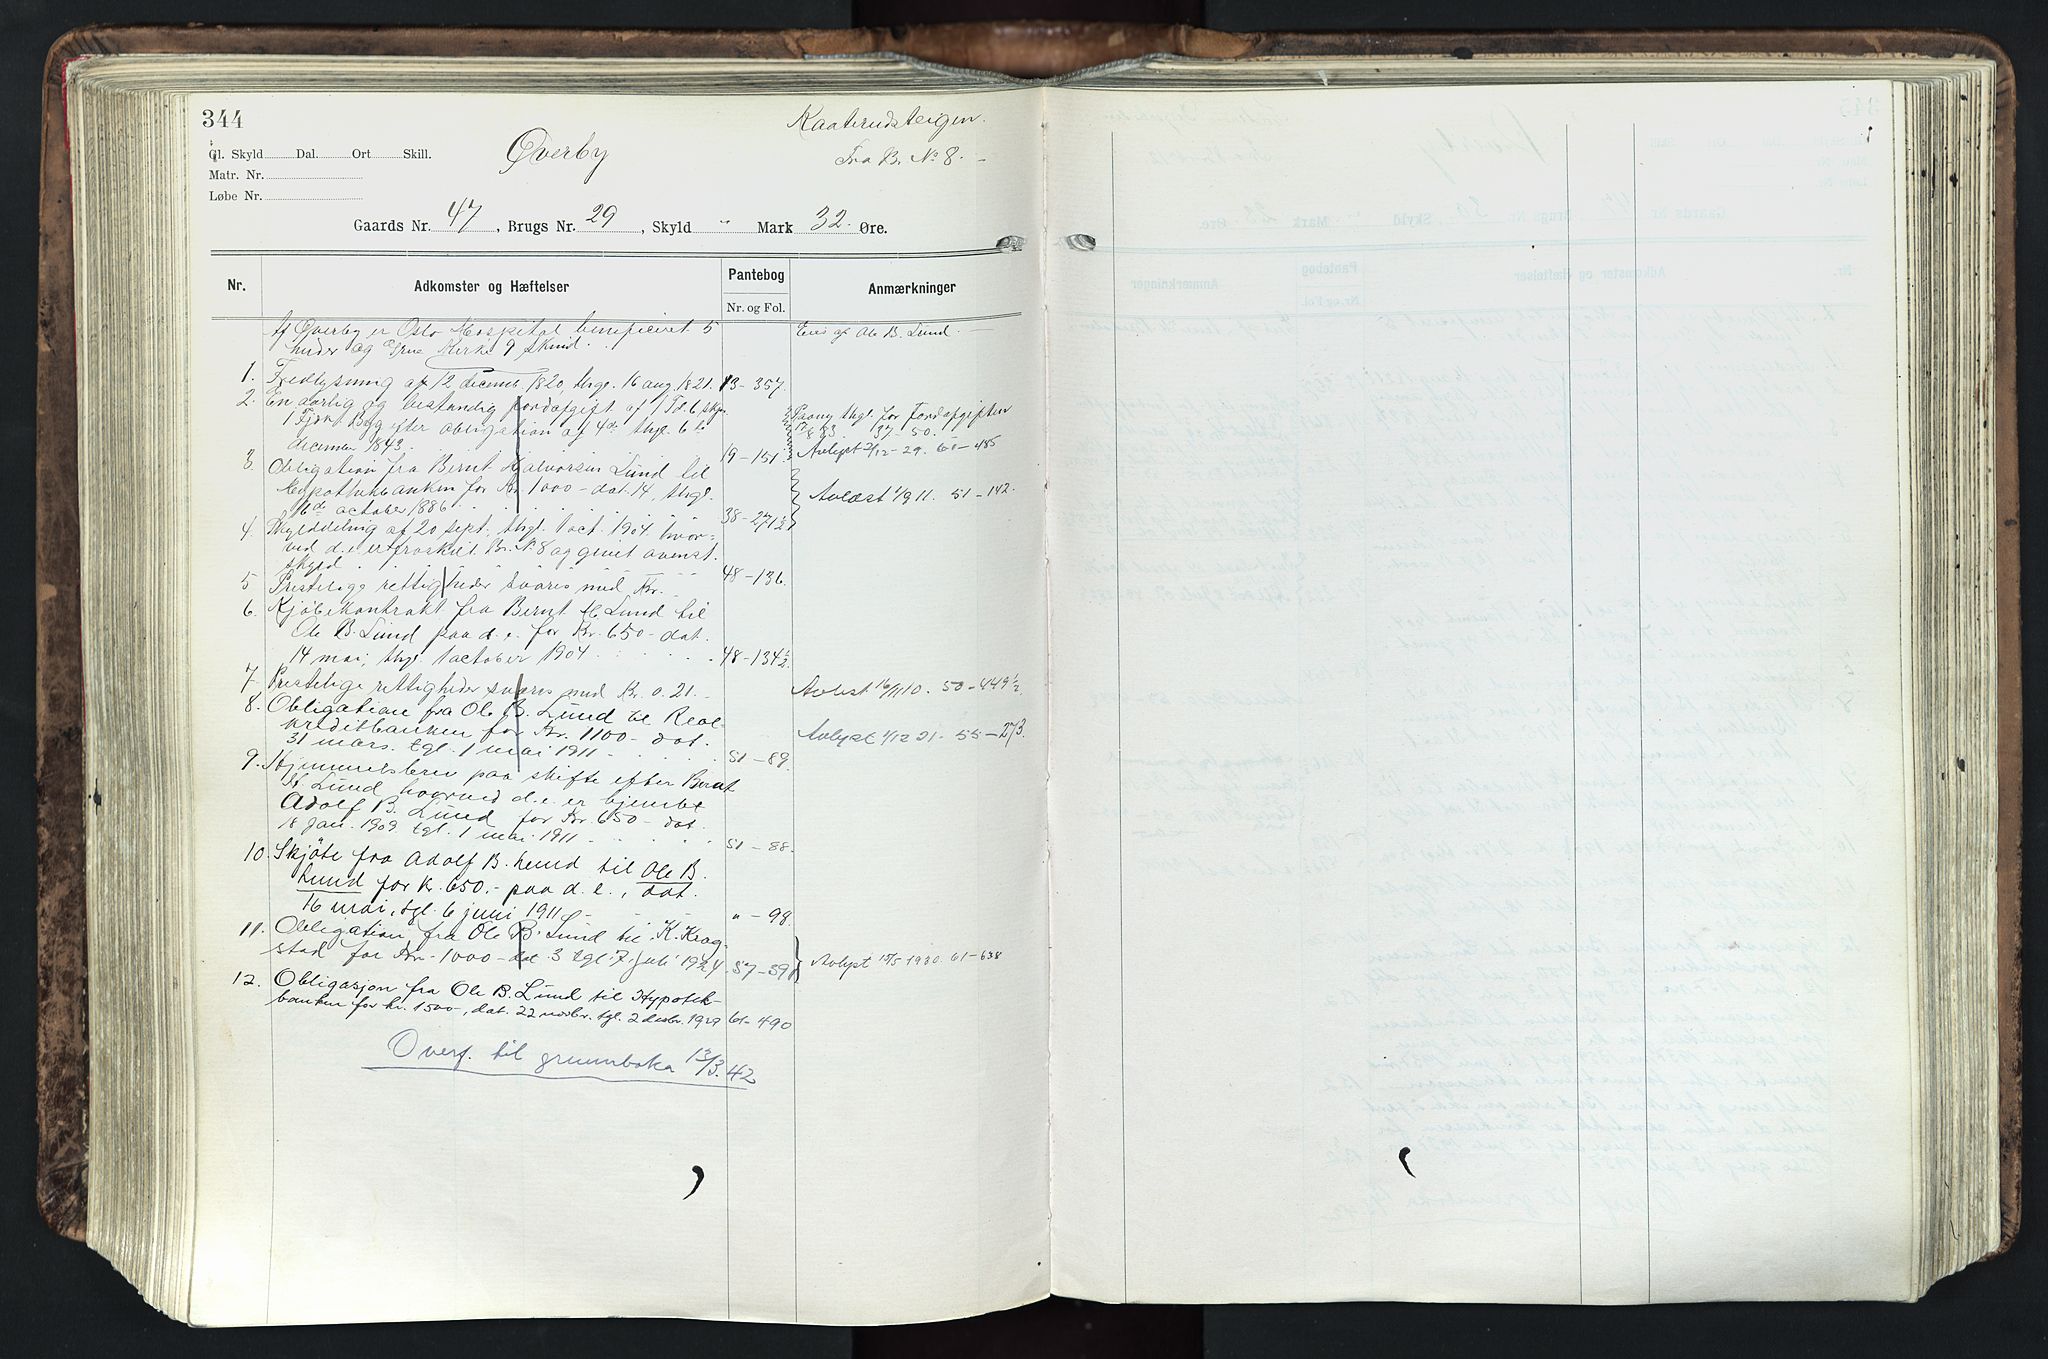 344
Kaaterudsteigen.
Gl. Skyld Dal. Ort Skill.
Øverby
Fra B. No 8. –
Matr. Nr.
Løbe Nr.
Gaards Nr. 47, Brugs Nr. 29, Skyld " Mark 32 Øre.
Nr. Adkomster og Hæftelser Pantebog Nr. og Fol. Anmærkninger
Af Øverby er Oslo Hospital beneficeret 5 Eies af Ole B. Lund.
huder og Grue Kirke 9 skind.
1. Fredlysning af 12 decembr. 1820, thgl. 16 aug. 1821. 13–357.
2. En aarlig og bestandig jordafgift af 1 Td. 6 skjr. Paany thgl. for Jordafgiften
1 Fjdk Byg efter obligation af 4de thgl. 6te 83. 37–50.
december 1843. 19–151. Avlyst 2/12–29. 61–485
3. Obligation fra Bernt Halvorsen Lund til
Hypothekbanken for Kr. 1000– dat. 14, thgl. Avlæst 1/9 11. 51–142.
16de october 1886 38–271½
4. Skylddeling af 20 sept., thgl. 1 oct. 1904 hvor-
ved d. e. er fraskilt Br. No 8 og givet ovenst.
skyld 48–136.
5 Prestelige rettigheder svares med Kr.
6. Kjøbekontrakt fra Bernt H. Lund til
Ole B. Lund paa d. e. for Kr. 650– dat.
14 mai, thgl. 1 october 1904 48–134½.
7. Prestelige rettigheder svares med Kr. 0.21.– Avlest 16/11 10. 50–449½.
8. Obligation fra Ole B. Lund til Real-
kreditbanken for Kr. 1100– dat. Avlyst 1/12 21– 55–273.
31 mars. tgl. 1 mai 1911 51–89.
9. Hjemmelsbrev paa skifte efter Bernt
H. Lund hvorved d. e. er hjemlet
Adolf B. Lund for Kr. 650– dat.
18 jan. 1909. tgl. 1 mai 1911 51–88.
10. Skjøte fra Adolf B. Lund til Ole B.
Lund for k. 650.– paa d. e., dat.
16 mai, tgl. 6 juni 1911 " – 98.
11. Obligation fra Ole B. Lund til K. Krog-
stad for Kr. 1000– dat. 3 tgl. 7 juli 1924 57–391 Avlyst 15/5 1930. 61–638
12. Obligasjon fra Ole B. Lund til Hypotek-
banken for kr. 1500–, dat. 22 novbr. tgl. 2 desbr. 1929 61–490
Overf. til grunnboka 13/3.42